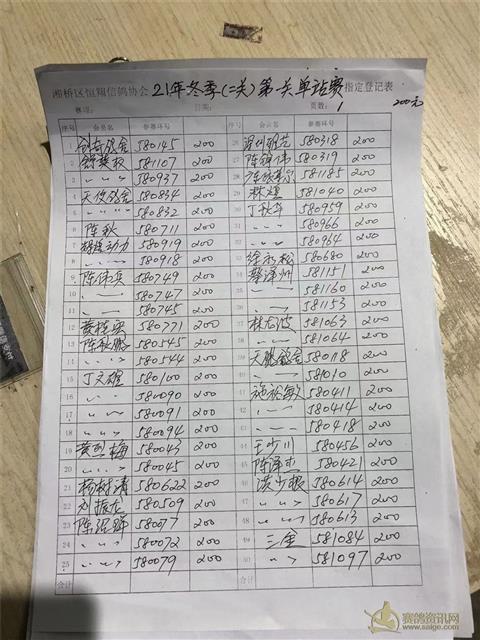 湘桥区恒翔信鸽协会 21年冬季(二关)第一关单站赛 指定登记表
赛项: 日期: 页数: 1 200元
序号 会员名 参赛环号 序号 会员名 参赛环号
1 580145 200 26 580318 200
2 581107 200 27 580319 200
3 〃 〃 580937 200 28 581185 200
4 580834 200 29 林煌 581040 200
5 〃 〃 580832 200 30 丁秋华 580959 200
6 陈秋 580711 200 31 〃 580966 200
7 翱旋动力 580919 200 32 〃 580964 200
8 〃 580918 200 33 徐永松 580680 200
9 陈伟兵 580749 200 34 蔡泽州 581151 200
10 〃 580747 200 35 〃 581160 200
11 〃 580745 200 36 〃 581153 200
12 580771 200 37 581063 200
13 陈秋鹏 580545 200 38 〃 581064 200
14 〃 580544 200 39 天鹏鸽舍 580118 200
15 丁文雄 580100 200 40 〃 581010 200
16 〃 580090 200 41 施松敏 580411 200
17 〃 〃 580091 200 42 〃 580414 200
18 〃 〃 580094 200 43 〃 580418 200
19 黄烈梅 580043 200 44 王少川 580456 200
20 〃 580045 200 45 陈泽杰 580421 200
21 杨树清 580622 200 46 洪少银 580614 200
22 刘振龙 580509 200 47 〃 〃 580617 200
23 580077 200 48 〃 〃 580613 200
24 〃 〃 580072 200 49 三金 581084 200
25 〃 〃 580079 200 50 〃 581097 200
合计 合计
赛鸽资讯网
www.saige.com